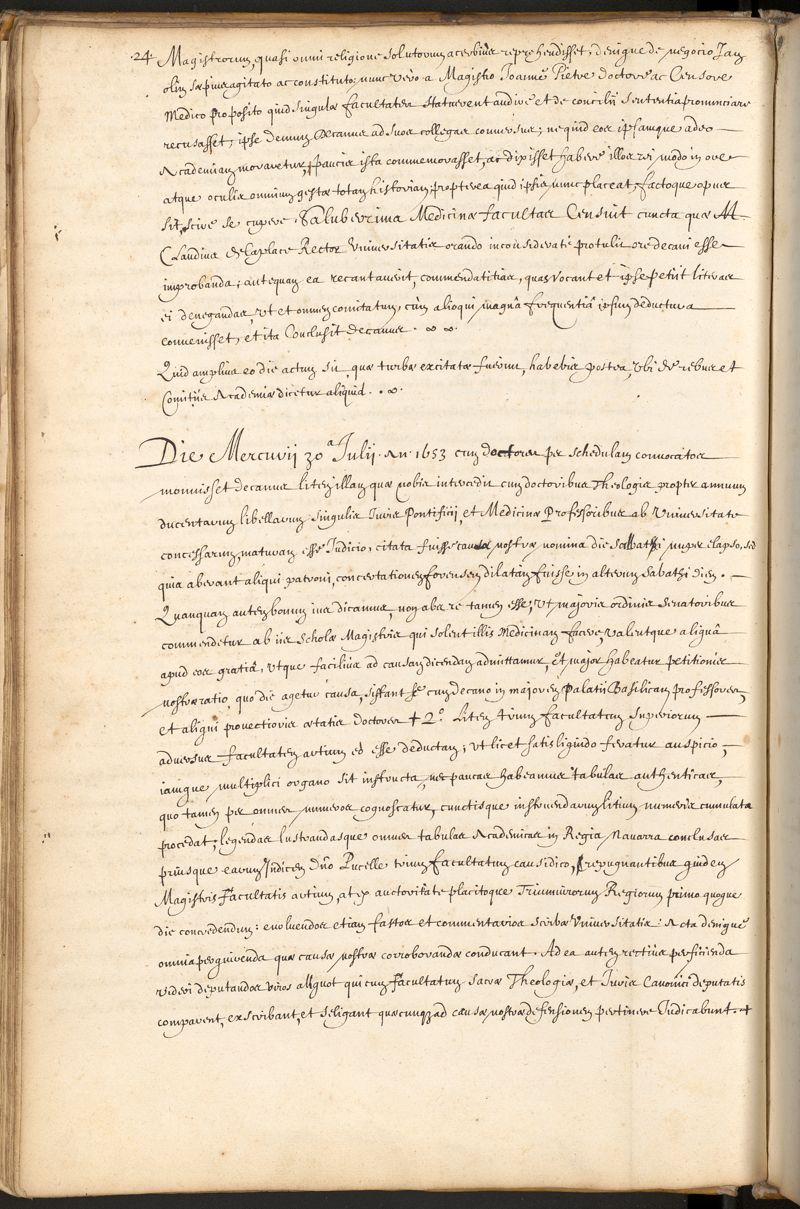 24. Magistrorum, quasi omni religione solutorum acerbius reprehendisset, denique de negocio Jam
olim sæpius agitato ac constituto, nunc vero a Magistro Joanne Pietre doctore ac Censore
Medico proposito quid singulæ facultates statuerent audire et de concilii sententia pronunciare
recusasset; ipse demum Decanus ad suos collegas conversus; ne quid eos ipsamque adeo
Academiam moraretur, paucis ista commemorasset, ac dixisset habere illos rei modo in ore
atque oculis omnium gestæ totam historiam; propterea quid ipsis nunc placeat, factoque opus
sit, scire se cupere, Saluberrima Medicinæ facultas Censuit cuncta quæ M.
Claudius Delaplace Rector Universitatis orando inconsiderate protulit ore decani esse
improbanda; antequam ea recantaverit, commendatitias, quas vocant et ipse petiit literas
ei denegandas, ut et omnem comitatum, cùm alioqui magnâ frequentiâ ipsum deductura
convenisset, et ita Conclusit decanus.
Quid amplius eo die actum sit, quæ turbæ excitatæ fuerint, habebis postea, ubi de rebus et
Comitiis Academiæ dicetur aliquid.
Die Mercurij 30ª Julij. An. 1653 cum doctores per schedulam convocatos
monuisset decanus litem illam quæ nobis intercedit cum doctoribus Theologis propter annuum
ducentarum libellarum singulis Juris Pontificij, et Medicinæ Professoribus ab Universitate
concessarum, maturam esse Judicio, citata fuisse causæ nostræ nomina die sabbathi nuper elapso, sed
quia aberant aliqui patroni, concertationem forensem dilatam fuisse in alterum Sabathi diem.
Quanquam autem bonum ius dicamus, non abs re tamen esse, ut majoris ordinis Senatoribus
commendetur ab iis Scholæ Magistris qui solent illis Medicinam facere, valentque aliquâ
apud eos gratiâ, utque facilius ad causam dicendam admittamur, et major habeatur petitionis
nostræ ratio, quo die agetur causa, sistant se cum decano in majorem Palatii Basilicam professores,
et aliqui provectioris ætatis doctores + 2º. Litem trium facultatum superiorum
adversus facultatem artium eò esse deductam; ut licet satis liquido feratur auspicio,
iamque multiplici organo sit instructa, nec paucas habeamus tabulas authenticas,
quo tamen per omnes numeros cognoscatur, cunctisque instruendarum litium numeris cumulata
procedat, legendas lustrandasque omnes tabulas Academicas in Regia Navarra conclusas
priusque earum Indicem dño Pucelle trium facultatum causidico, repugnantibus quidem
Magistris facultatis artium, at ex auctoritate placitoque Triumvirorum Regiorum primo quoque
die concredendum: evoluendos etiam fastos et commentarios scribæ Universitatis: Acta denique
omnia perquirenda quæ causæ nostræ corroborandæ conducant. Ad ea autem rectius perficienda
videri deputandos viros aliquot qui cum facultatum sacræ Theologiæ, et Juris Canonici deputatis
comparent, exscribant, et seligant quæcunque ad causæ nostræ defensionem pertinere Judicabunt. +